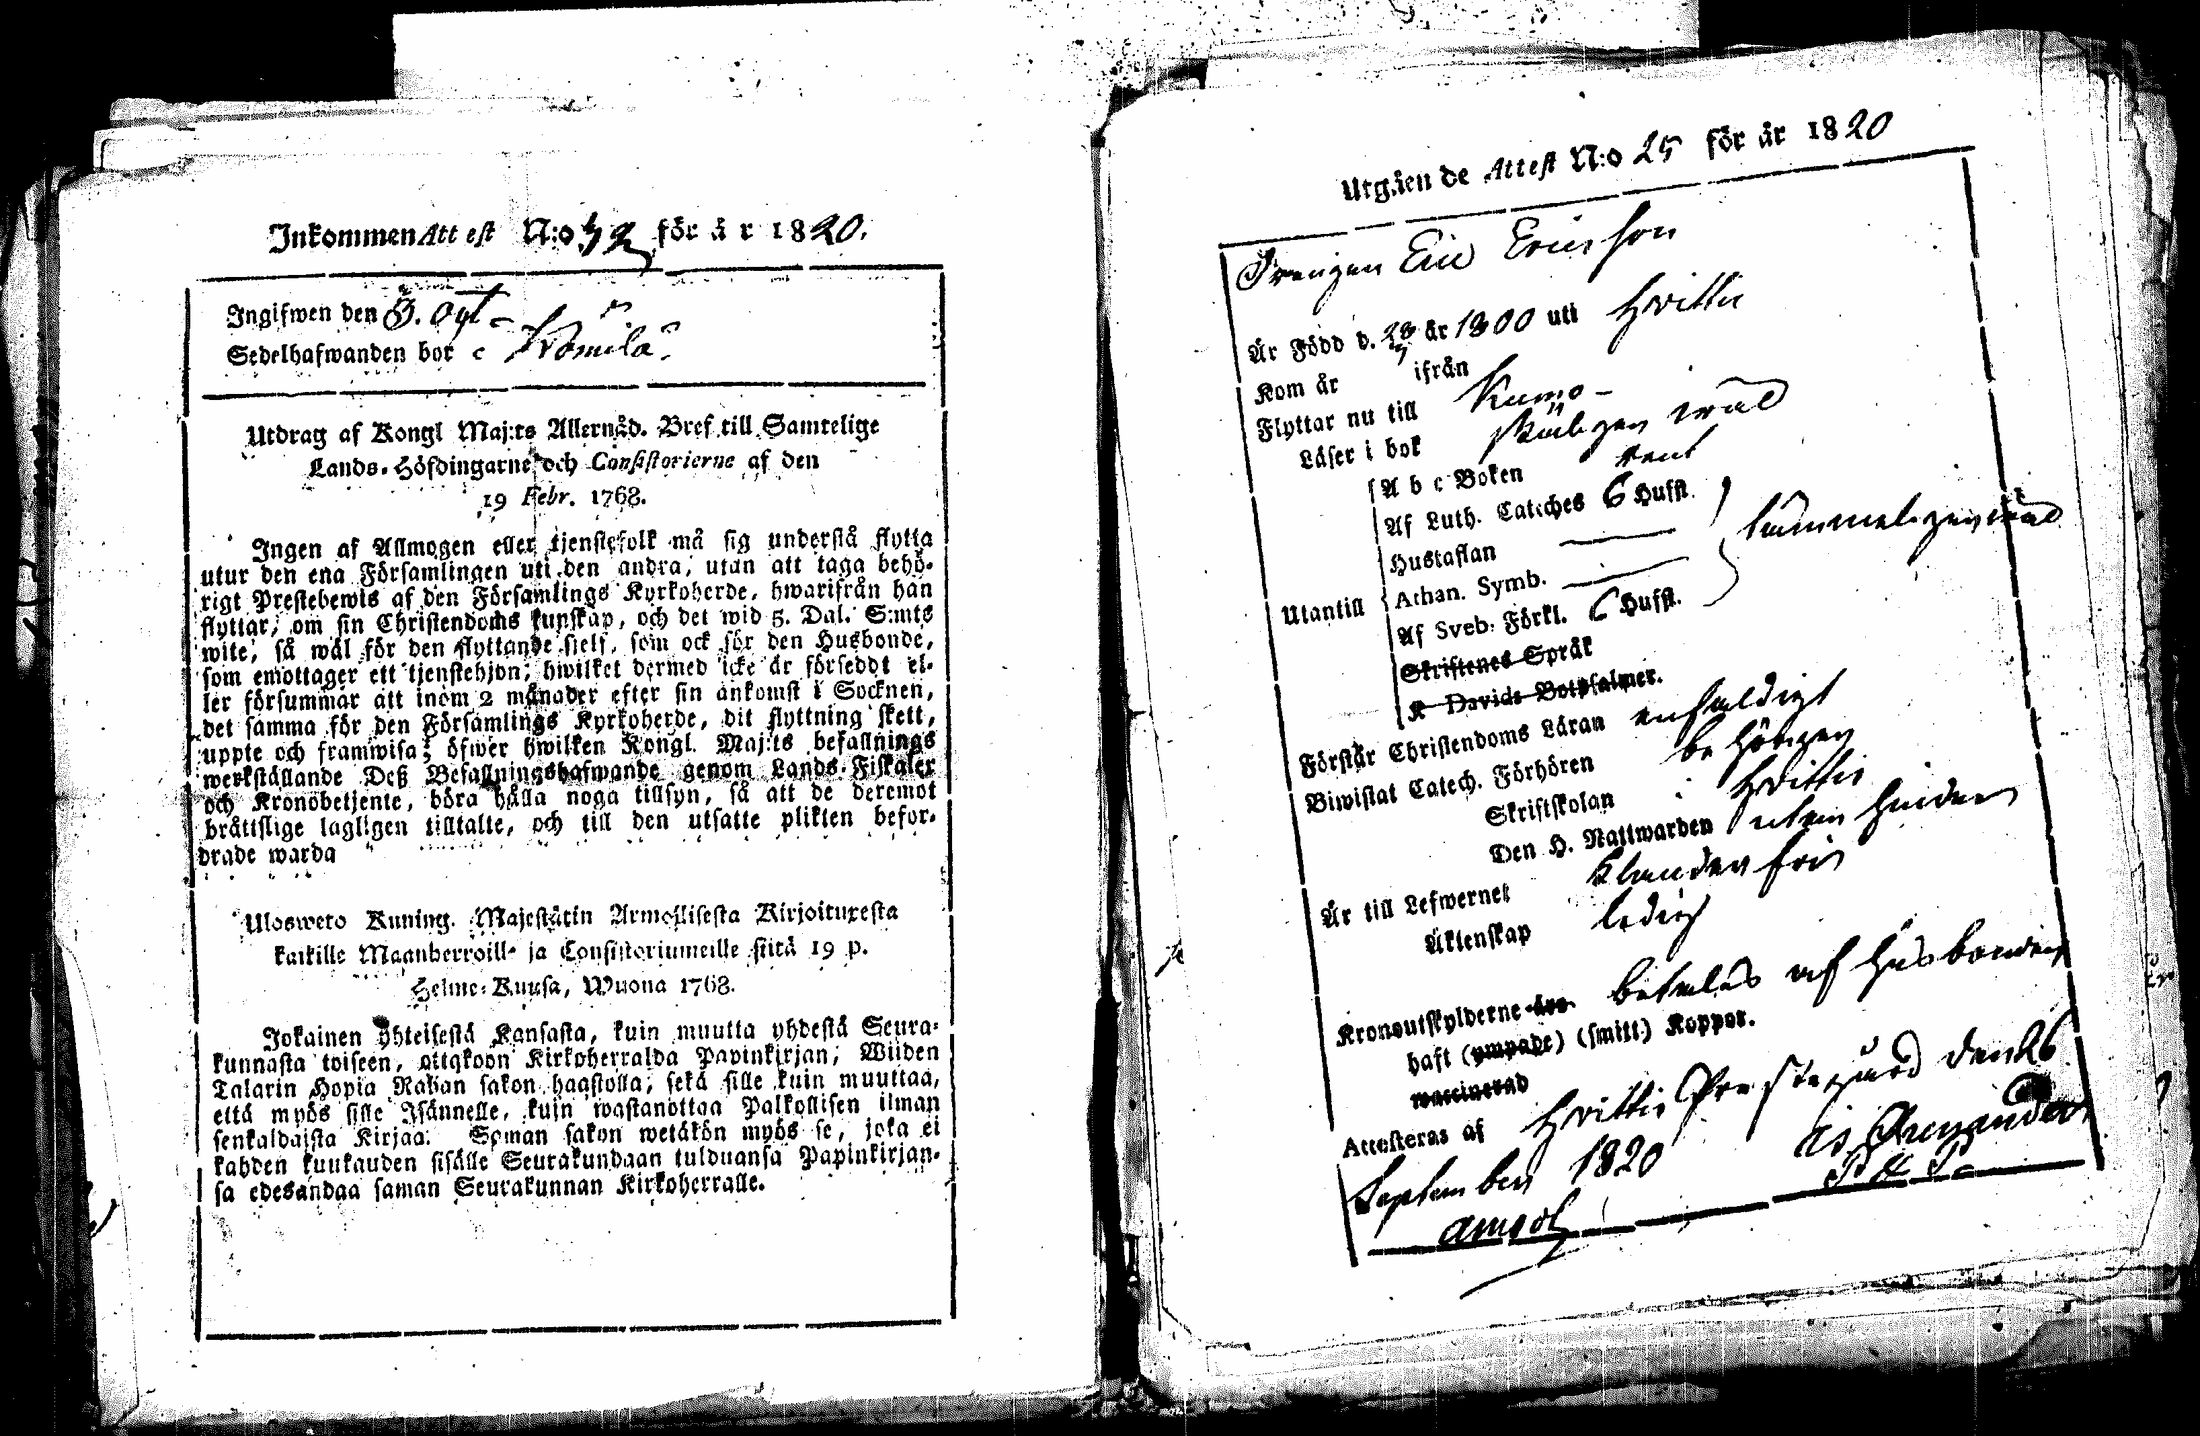 Inkommen Attest N:o 42 för år 1820.
Ingifwen den 3. Oct
Sedelhafwanden bor i Kromila.
Utdrag af Kongl Maj:ts Allernåd. Bref till Samtelige
Lands-Höfdingarne och Consistorierne af den
19 Febr. 1768.
Ingen af Allmogen eller tjenstefolk må sig understå flytta
utur den ena Församlingen uti den andra, utan att taga behö-
rigt Prestebewis af den Församlings Kyrkoherde, hwarifrån han
flyttar, om sin Christendoms kunskap, och det wid 5. Dal. S:mts
wite, så wäl för den flyttande sjelf, som ock för den Husbonde,
som emottager ett tjenstehjon, hwilket dermed icke är förseddt el-
ler försummar att inom 2 månader efter sin ankomst i Socknen,
det samma för den Församlings Kyrkoherde, dit flyttning skett,
uppte och framwisa; öfwer hwilken Kongl. Maj:ts befallnings
werkställande Deß Befallningshafwande genom Lands-Fiskaler
och Kronobetjente, böra hålla noga tillsyn, så att de deremot
bråttslige lagligen tilltalte, och till den utsatte plikten befor-
drade warda
Ulosweto Kuning. Majestätin Armollisesta Kirjoituxesta
kaikille Maanherroill- ja Consistoriumeille siitä 19 p.
Helme-Kuusa, Wuona 1768.
Jokainen Yhteisestä Kansasta, kuin muutta yhdestä Seura-
kunnasta toiseen, ottakoon Kirkoherralda Papinkirjan, Wiiden
Talarin Hopia Rahan sakon haastolla, sekä sille kuin muuttaa,
että myös sille Isännelle, kuin wastanottaa Palkollisen ilman
senkaldaista Kirjaa. Saman sakon wetäkön myös se, joka ei
kahden kuukauden sisälle Seurakundaan tulduansa Papinkirjan-
sa edesandaa saman Seurakunnan Kirkoherralle.
Utgåen de Attest N:o 25 för år 1820
Drengen Eric Ericsson
Är Född d. 28/7 år 1800 uti Hvittis
Kom år ifrån
Flyttar nu till Kumo
Läser i bok skäligen wäl
A b c Boken rent
Af Luth. Cateches 6 Hufst.
Hustaflan
Utantill Athan. Symb. tämmeligen wäl
Af Sveb. Förkl. 6 Hufst.
Skriftenes Språk
K Davids Botpsalmer.
Förstår Christendoms Läran enfaldigt
Biwistat Catech. Förhören behörigen
Skriftskolan i Hvittis
Den H. Nattwarden utan hinder
Är till Lefwernet Klanderfri
Äktenskap ledig
Kronoutskylderne äro betalas af Husbonden
haft (ympade) (smitt) Koppor.
waccinerad
Attesteras af Hvittis Prestegård den 26
September 1820